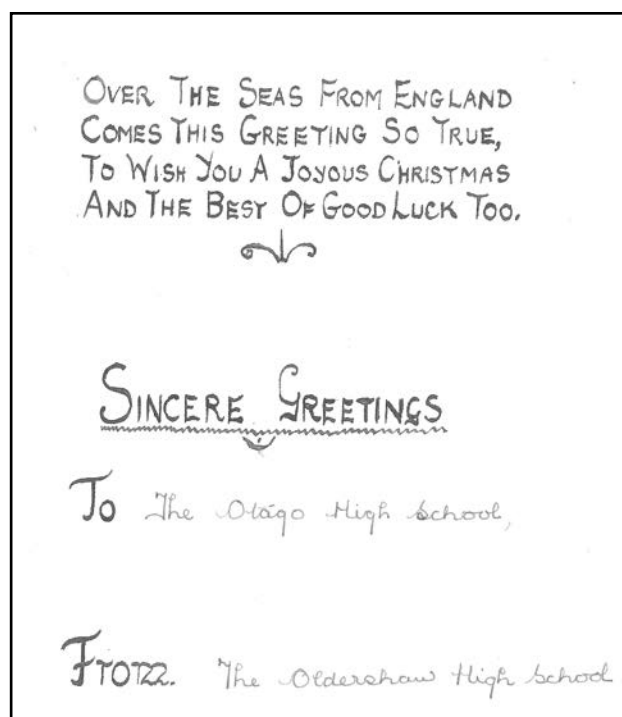 OVER THE SEAS FROM ENGLAND
COMES THIS GREETING SO TRUE,
TO WISH YOU A JOYOUS CHRISTMAS
AND THE BEST OF GOOD LUCK TOO.
SINCERE GREETINGS
To The Otago High School,
From. The Oldershaw High School